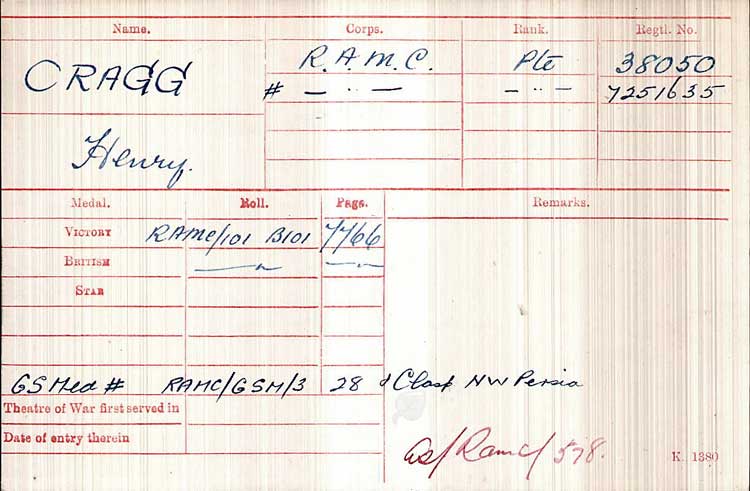 Name. Corps. Rank. Regtl. No.
CRAGG R.A.M.C. Pte 38050
# — " — — " — 7251635
Henry.
Medal. Roll. Page. Remarks.
VICTORY RAMC/101 B101 7766
BRITISH — " — " —
STAR
GS Med # RAMC/GSM/3 28 & Clasp NW Persia
Theatre of War first served in
Date of entry therein
/Ramc/578. K. 1380